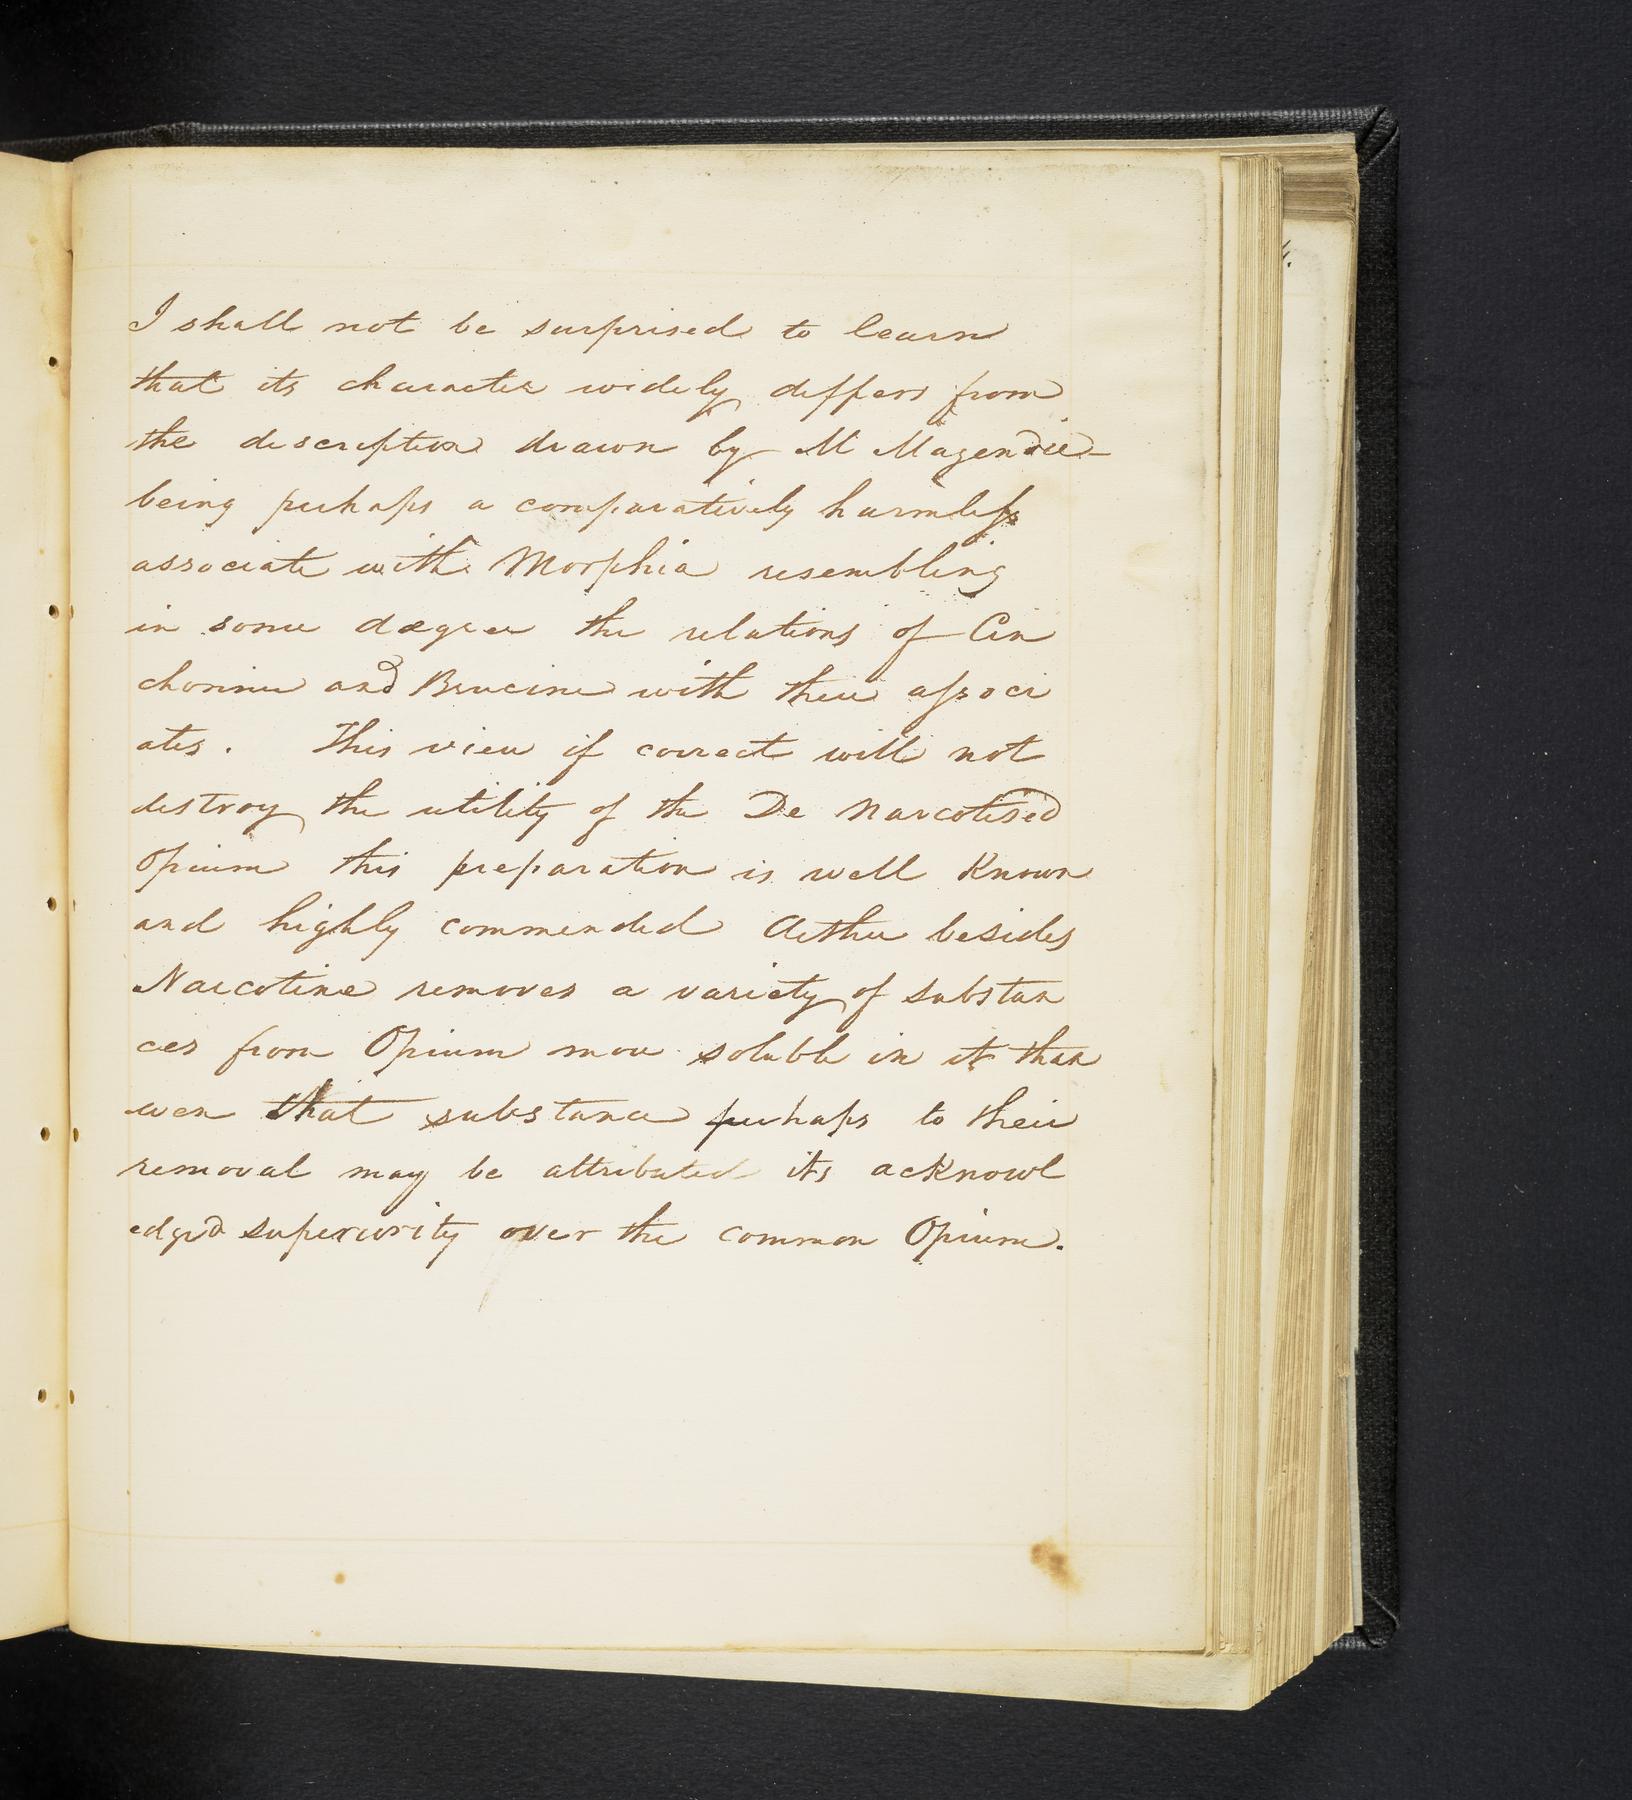 I shall not be surprised to learn
that its character widely differs from
the description drawn by M Magendie
being perhaps a comparatively harmless
associate with Morphia resembling
in some degree the relations of Cin
chonine and Brucine with their associ
ates. This view if correct will not
destroy the utility of the De Narcotised
Opium this preparation is well Known
and highly commended Aether besides
Narcotine removes a variety of substan
ces from Opium more soluble in it than
even that substance perhaps to their
removal may be attributed its acKnowl
edged superiority over the common Opium.